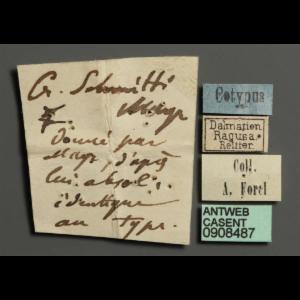 Cr. Schmitti
Mayr
☿.
donné par
Mayr, d'après
lui absol.
identique
au type.
Cotypus
Dalmatien
Ragusa.
Reitter.
Coll.
A. Forel
ANTWEB
CASENT
0908487